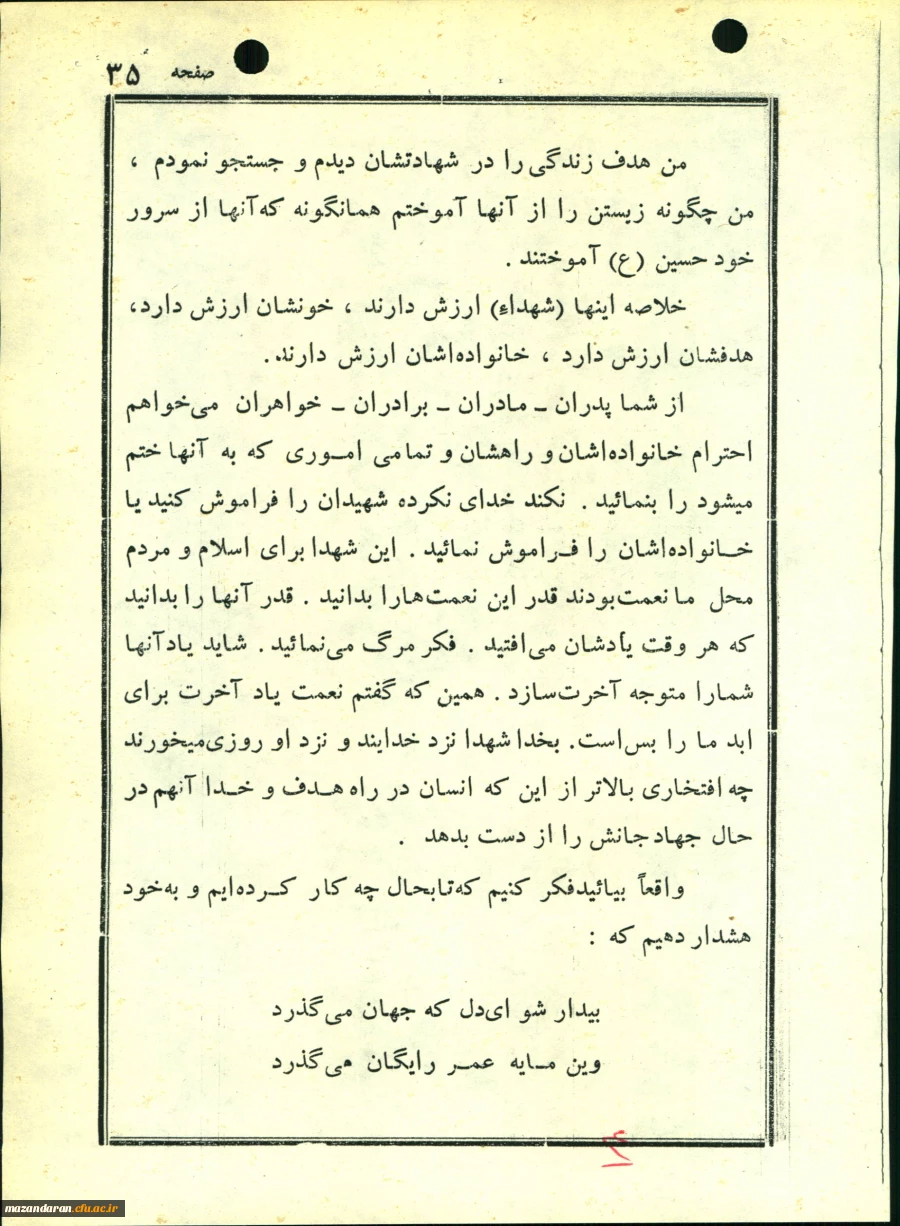 صفحه ۳۵
من هدف زندگی را در شهادتشان دیدم و جستجو نمودم ،
من چگونه زیستن را از آنها آموختم همانگونه که‌آنها از سرور
خود حسین (ع) آموختند .
خلاصه اینها (شهداء) ارزش دارند ، خونشان ارزش دارد،
هدفشان ارزش دارد ، خانواده‌اشان ارزش دارند.
از شما پدران ـ مادران ـ برادران ـ خواهران می‌خواهم
احترام خانواده‌اشان و راهشان و تمامی امـوری که به آنها ختم
میشود را بنمائید . نکند خدای نکرده شهیدان را فراموش کنید یا
خـانواده‌اشان را فـراموش نمائید . این شهدا برای اسلام و مردم
محل ما نعمت‌بودند قدر این نعمت‌هارا بدانید . قدر آنها را بدانید
که هر وقت یادشان می‌افتید . فکر مرگ می‌نمائید . شاید یادآنها
شمارا متوجه آخرت‌سازد . همین که گفتم نعمت یاد آخرت برای
ابد ما را بس‌است. بخدا شهدا نزد خدایند و نزد او روزی‌میخورند
چه افتخاری بالاتر از این که انسان در راه هـدف و خـدا آنهم در
حال جهاد جانش را از دست بدهد .
واقعاً بیائیدفکر کنیم که‌تابحال چه کار کـرده‌ایم و به‌خود
هشدار دهیم که :
بیدار شو ای‌دل که جهان می‌گذرد
وین مـایه عمـر رایگان می‌گذرد
mazandaran.cfu.ac.ir